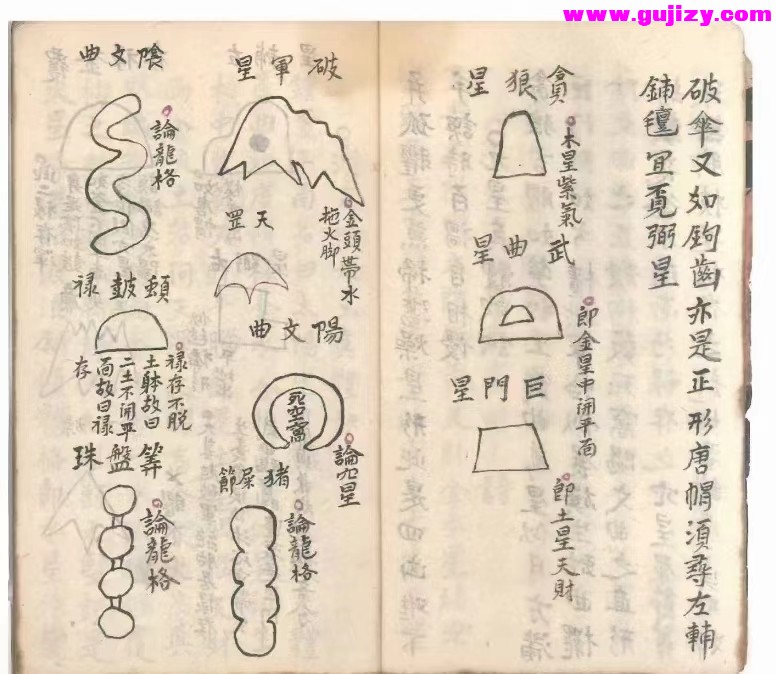 www.gujizy.com
破傘又如鉤齒亦是正形唐帽須尋左輔
鋪氊冝覔弼星
貪狼星
木星紫氣
武曲星
即金星中開平面
巨門星
即土星天財
破軍星
金頭帶水
拖火脚
天罡
陽文曲
死空窩
論九星
猪屎節
論龍格
陰文曲
論龍格
頰鼓禄
禄存不脱
土躰故曰
二土不開平
面故曰禄
存
等盤珠
論龍格